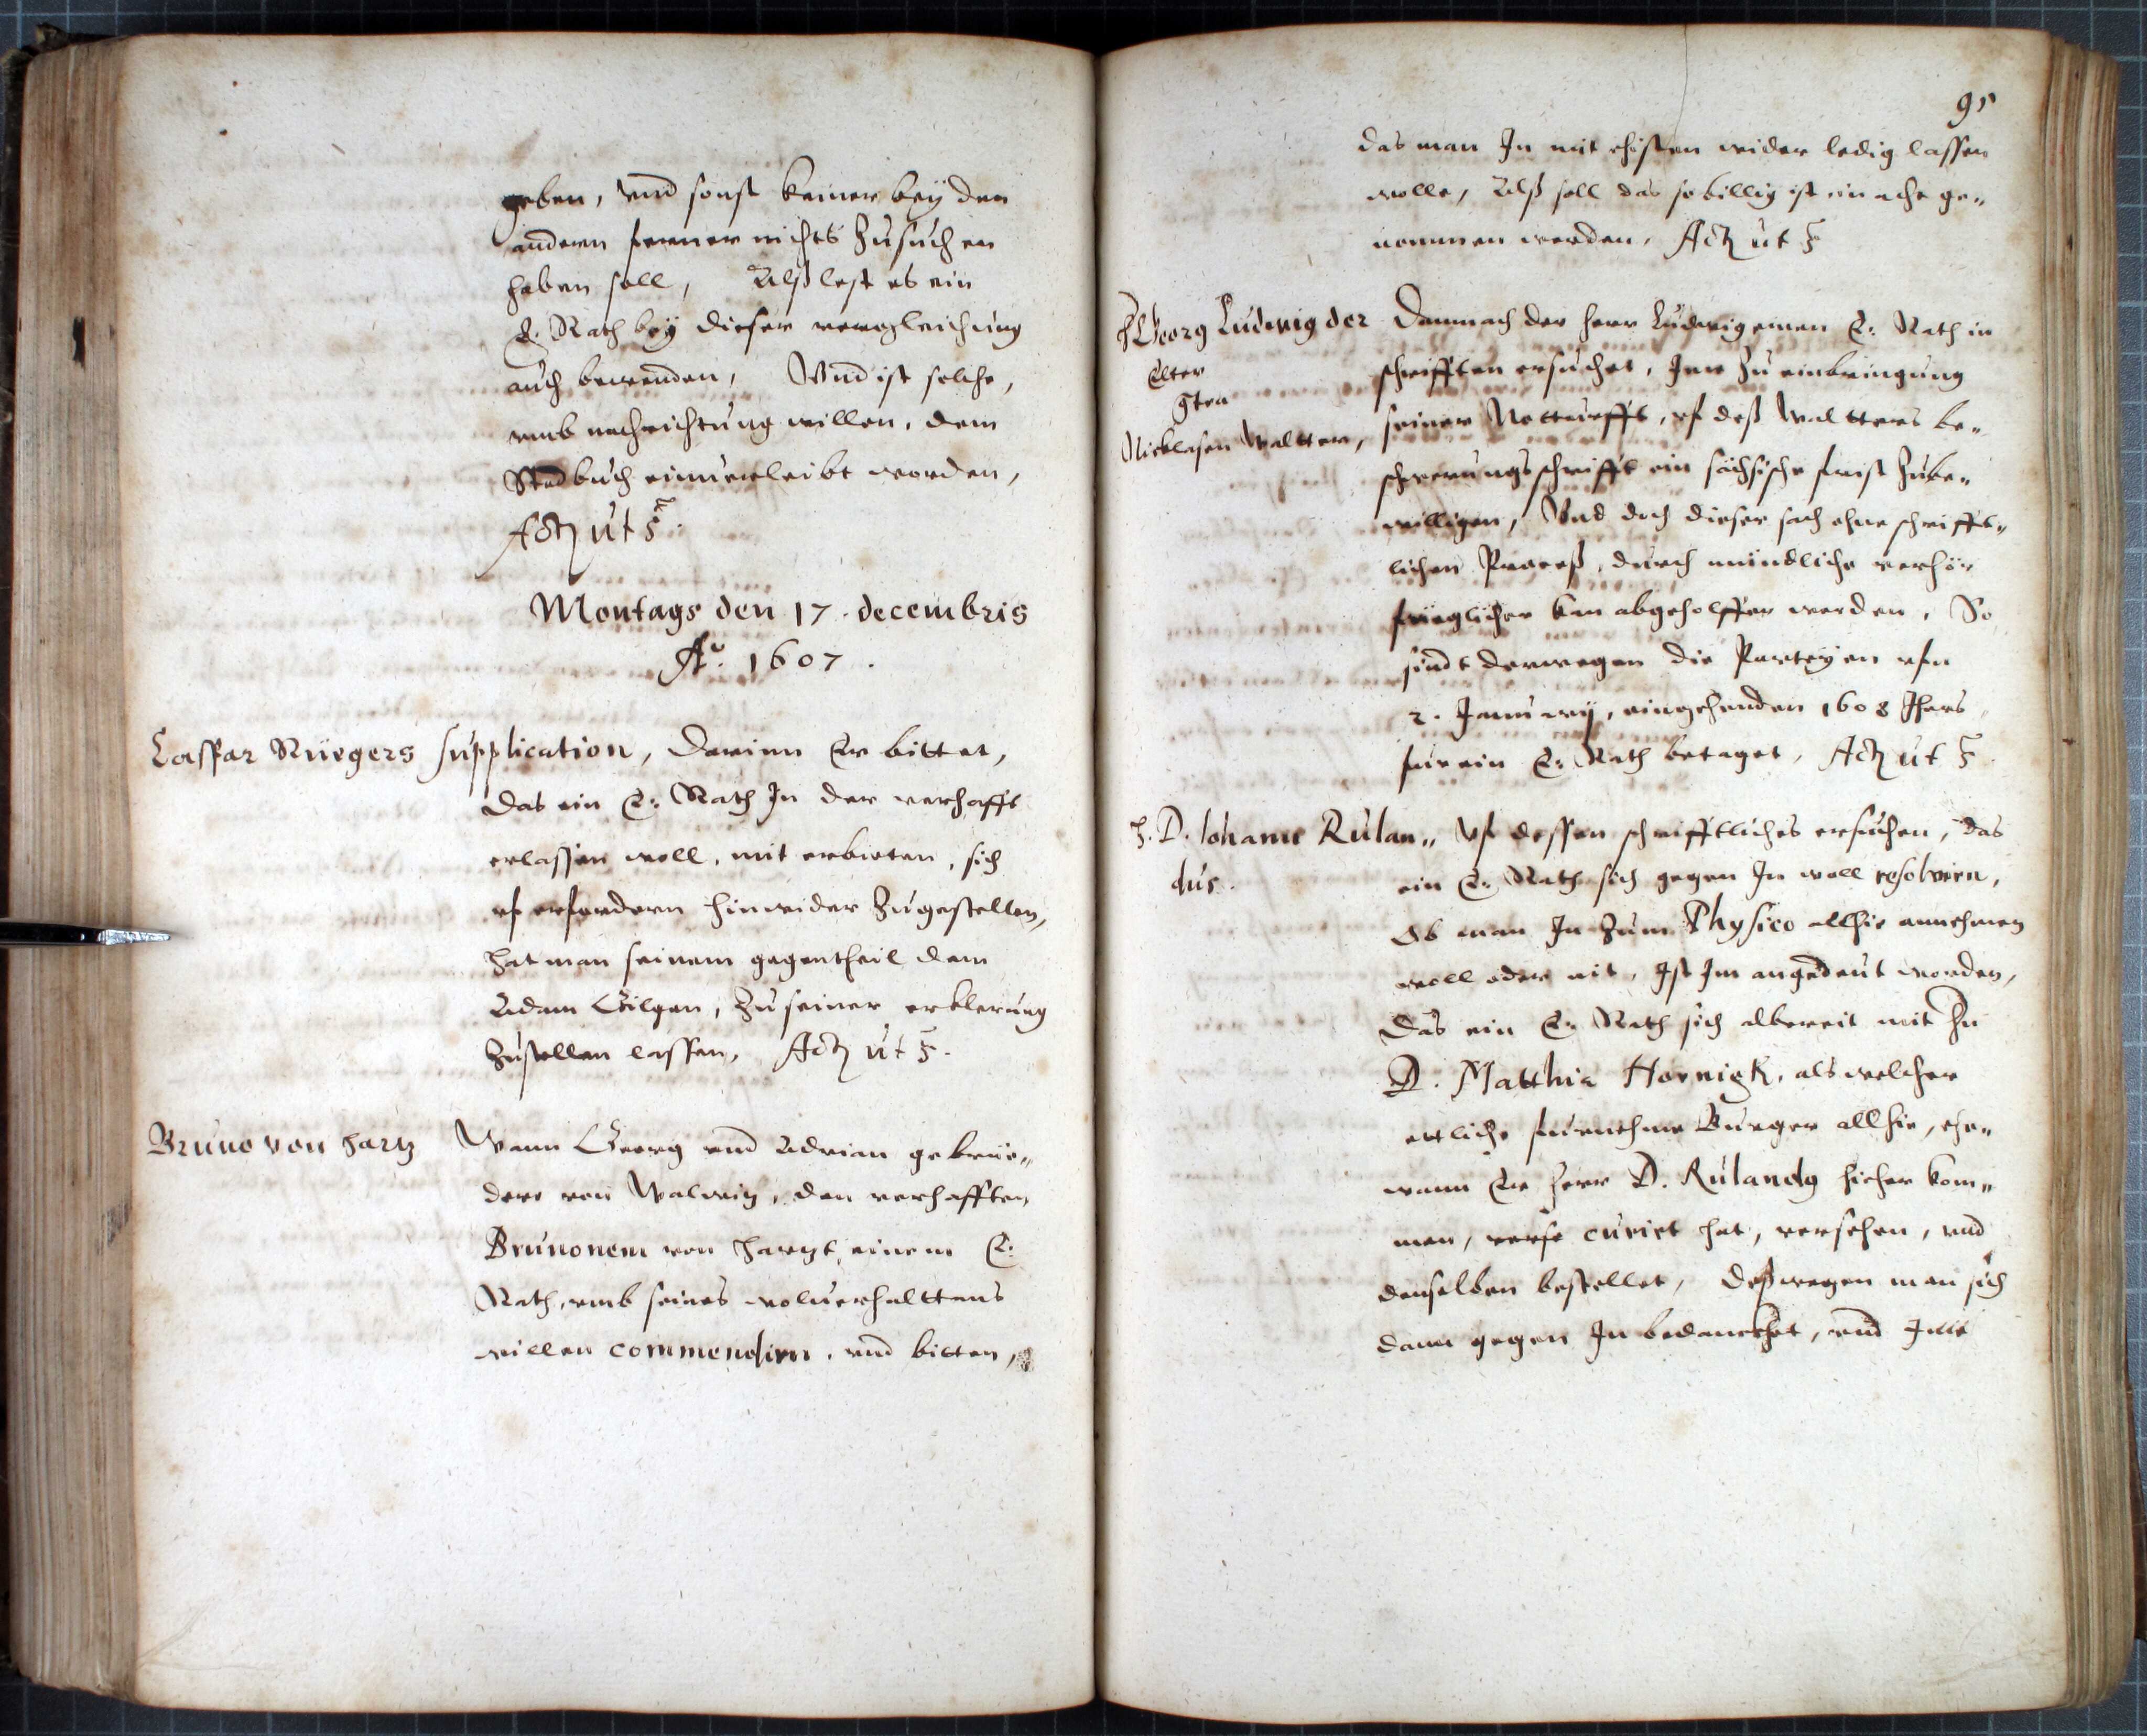 geben, vnd sonst keiner bey den
andern ferner nichts zusuchen
haben soll, Alß lest es ein
E. Rath bey dieser vergleichung
auch bewenden, Vnd ist solche,
vmb nachrichtung willen, dem
Stadbuch einuerleibt worden,
Actum ut s.
Montags den 17. decembris
Ao. 1607.
Caspar Rüegers supplication, darinn Er bittet,
das ein E. Rath In der verhafft
erlassen woll, mit erbieten, sich
vf erfordern hinwider zugestellen,
hat man seinem gegentheil dem
Adam Gilgen, zu seiner erklerung
zustellen lassen, Actum ut s.
Bruno von hartz Wann Georg vnd Adrian gebrüe„
dere von Walwitz, den verhafften
Brunonem von Hartzt, einem E.
Rath, vmb seines woluerhalttens
willen commendirn, vnd bitten,
95
das man In mit ehisten wider ledig lassen
wolle, Alß soll das so billig ist in acht ge„
nommen werden, Actum ut s
H Georg Ludwig der Elter
Gtra
Nicklasen Waltter,
Demnach der Herr Ludwig einen E. Rath in
schrifften ersuchet, Ime zu einbringung
seiner Notturfft, vf deß Waltters be„
schwerungsschrifft ein sächsische frist zube„
willigen, Vnd doch dieser sach ohne schrifft„
lichen Proceß, durch mündliche verhör
füeglicher kan abgeholffen werden, So
sindt derwegen die Parteyen vfn
2. Januarij, eingehenden 1608 Jhars
für ein E. Rath betaget, Actum ut s
H. D. Johanne Rulan„
dus.
Vf dessen schrifftliches ersuchen, das
ein E. Rath sich gegen In woll resolvirn,
Ob man In zum Physico allhie annehmen
woll oder nit, Ist Im angedeut worden,
Das ein E. Rath sich albereit mit Hn
D. Matthia Hornigk, als welcher
ettliche furnehme Burger allhie, ehe„
wann Er Herr D. Rulandus hieher kom„
men, curirt hat, versehen, vnd
denselben bestellet, Deßwegen man sich
dann gegen In bedancket, vnd Ime